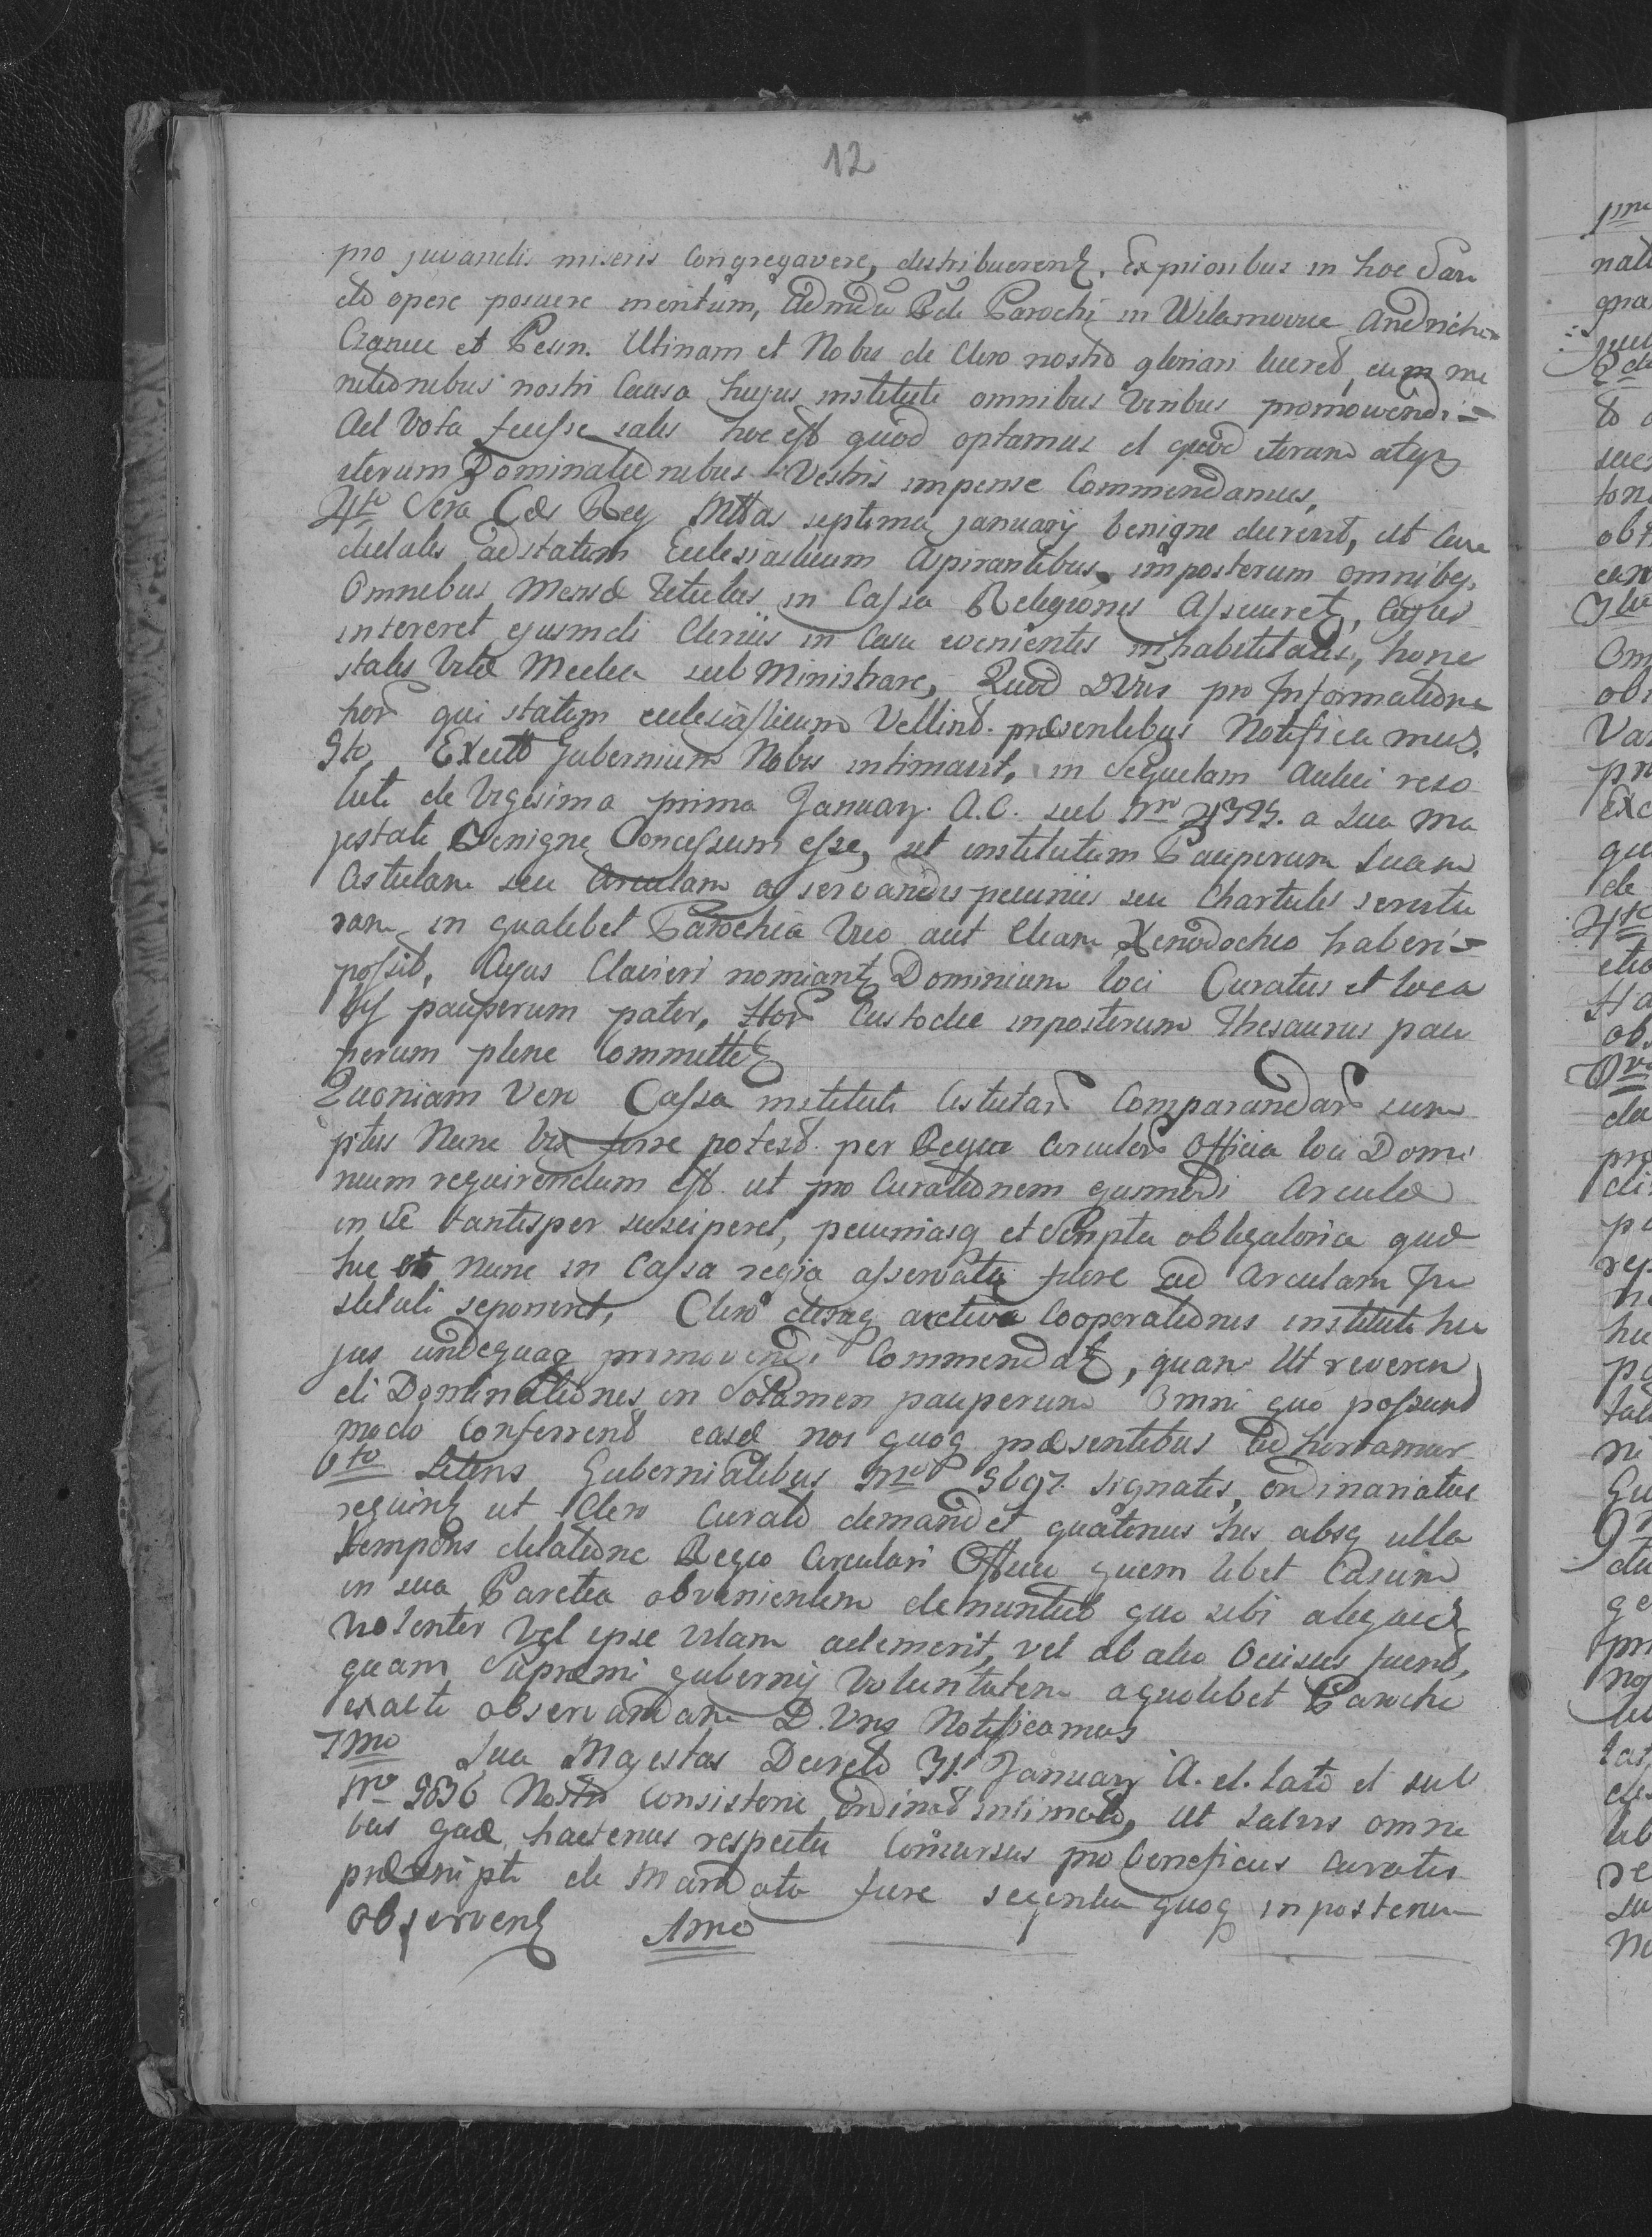 12
pro juvandis miseris Congregavere, distribuerent. Ex prioribus in hoc San
cto opere posuere meritum, Admdu Rdi Parochi in Wilamowice Andricho
Utinam et Nobis de Clero nostro gloriari liceret, cum
nitionibus nostri Causa hujus instituti omnibus viribus promowendi
Ad Vota fuisse satis hoc est quod optamus et quod iteram atque
iterum Dominationibus Vestris impense Commendamus,
4to Sera Cæs Reg Mttas septima january benigne decrevit, ut
ad statum Ecclesiasticum Aspirantibus imposterum omnibus
Omnibus Mensæ Titulus in Cassa Religionis Assecuret, Cujus
intereret ejusmdi Clericis in Casu evenientis inhabilitatis, hone
statis Vitæ Media sub Ministrare, Quod DVris pro Informatione
hor qui statum ecclesiasticum Vellint præsentibus Notificamus.
5to Excels Gubernium Nobis intimavit, in Sequelam Aulici reso
luti de Vigesima prima January A.C. sub Nro 4395. a Sua Ma
jestate Benigne Concessum esse, ut institutum Pauperum Suam
Cistulam seu Arculam asservandis pecuniis seu Chartulis
in qualibet Parochia Vico aut Etiam Xenodochio haberi
possit, Cujus Clavieri nominant Dominium loci Curatus et loca
lis pauperum pater, Hor Custodiæ inposterum Thesaurus pau
perum plene Committet
Quoniam Vero Cassa instituti Cistular Comparandar sum
ptus Nunc Vix ferre potest per Regia Circular Officia loci Domi
nium requirendum est ut pro Curationem ejusmodi Arculæ
in se tantisper susciperet, pecuniasq et Scripta obligatoria quæ
huc et Nunc in Cassa regia asservata fuere ad Arculam In
stituti seponeret, Clero activa Cooperationis instituti hu
jus undequaq promovendi Commendat, quam Ut reveren
di Dominationes in Solamen pauperum Omni quo possunt
modo Conferrent easd nos quoq præsentibus Adhortamur
6to Literis Gubernialibus Nro signatis, Ordinariatus
requirit ut Clero Curato demandet quatenus his absq ulla
tempóris dilatione Regio Circulari Officio quem libet Casum
in sua Paroeia obvenientem denuntiet quo sibi aliquis
Vel ipse vitam ademerit, vel ab alio Occisus fuerit,
quam Supremi gubernij Voluntatem aquolibet Parocho
exacte observandam D. Vris Notificamus
7mo Sua Majestas Decreto 31. January A. et. lato et sub
Nro 9836 Nostro Consistorio Ordinat intimato, ut salvis omni
bus quæ hactenus respectu Concursus pro beneficiis curatis
præscripta de Mandata fuere sequentia quoq inposterum
observent 1mo